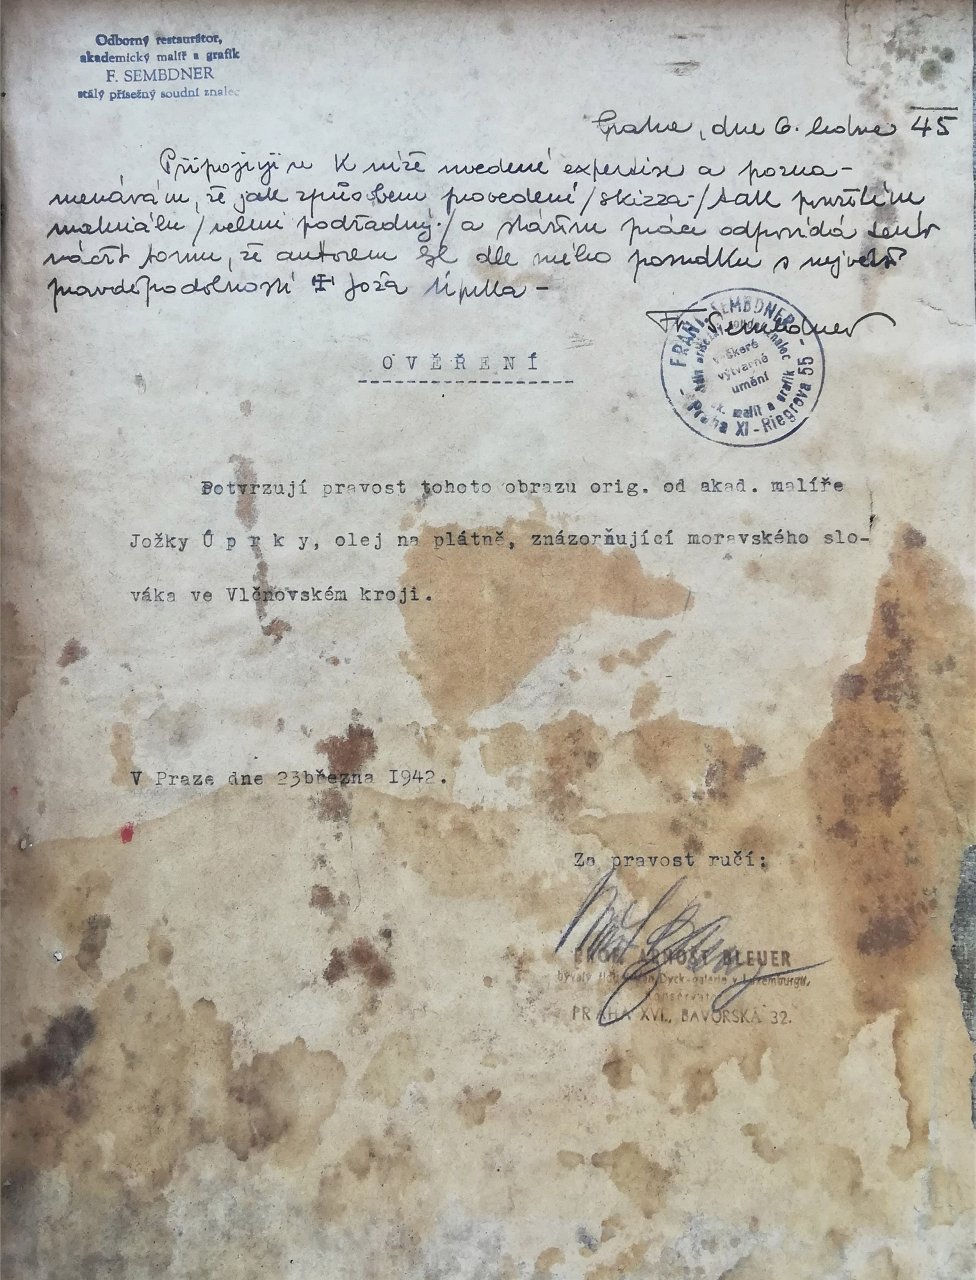 Odborný restaurátor,
akademický malíř a grafik
F. SEMBDNER
stálý přísežný soudní znalec
Praha, dne 6. ledna 45
Připojuji se k níže uvedené expertise a pozna-
menávám, že jak způsobem provedení /skizza-/ tak použitím
materiálu /velmi podřadný/ a stářím práce odpovídá tento
náčrt tomu, že autorem byl dle mého posudku s největší
pravděpodobností Joža Úprka -
Fr. Sembdner
FRANT. SEMBDNER
stálý přísežný soudní znalec
veškeré
výtvarné
umění
ak. malíř a grafik
- Praha XI - Riegrova 55 -
OVĚŘENÍ
Potvrzují pravost tohoto obrazu orig. od akad. malíře
Jožky Ú p r k y, olej na plátně, znázorňující moravského slo-
váka ve Vlčnovském kroji.
V Praze dne 23března 1942.
Za pravost ručí:
ARNOŠT BLEUER
bývalý Dyck-galerie v Luxemburgu,
konservátor
PRAHA XVI., BAVORSKÁ 32.